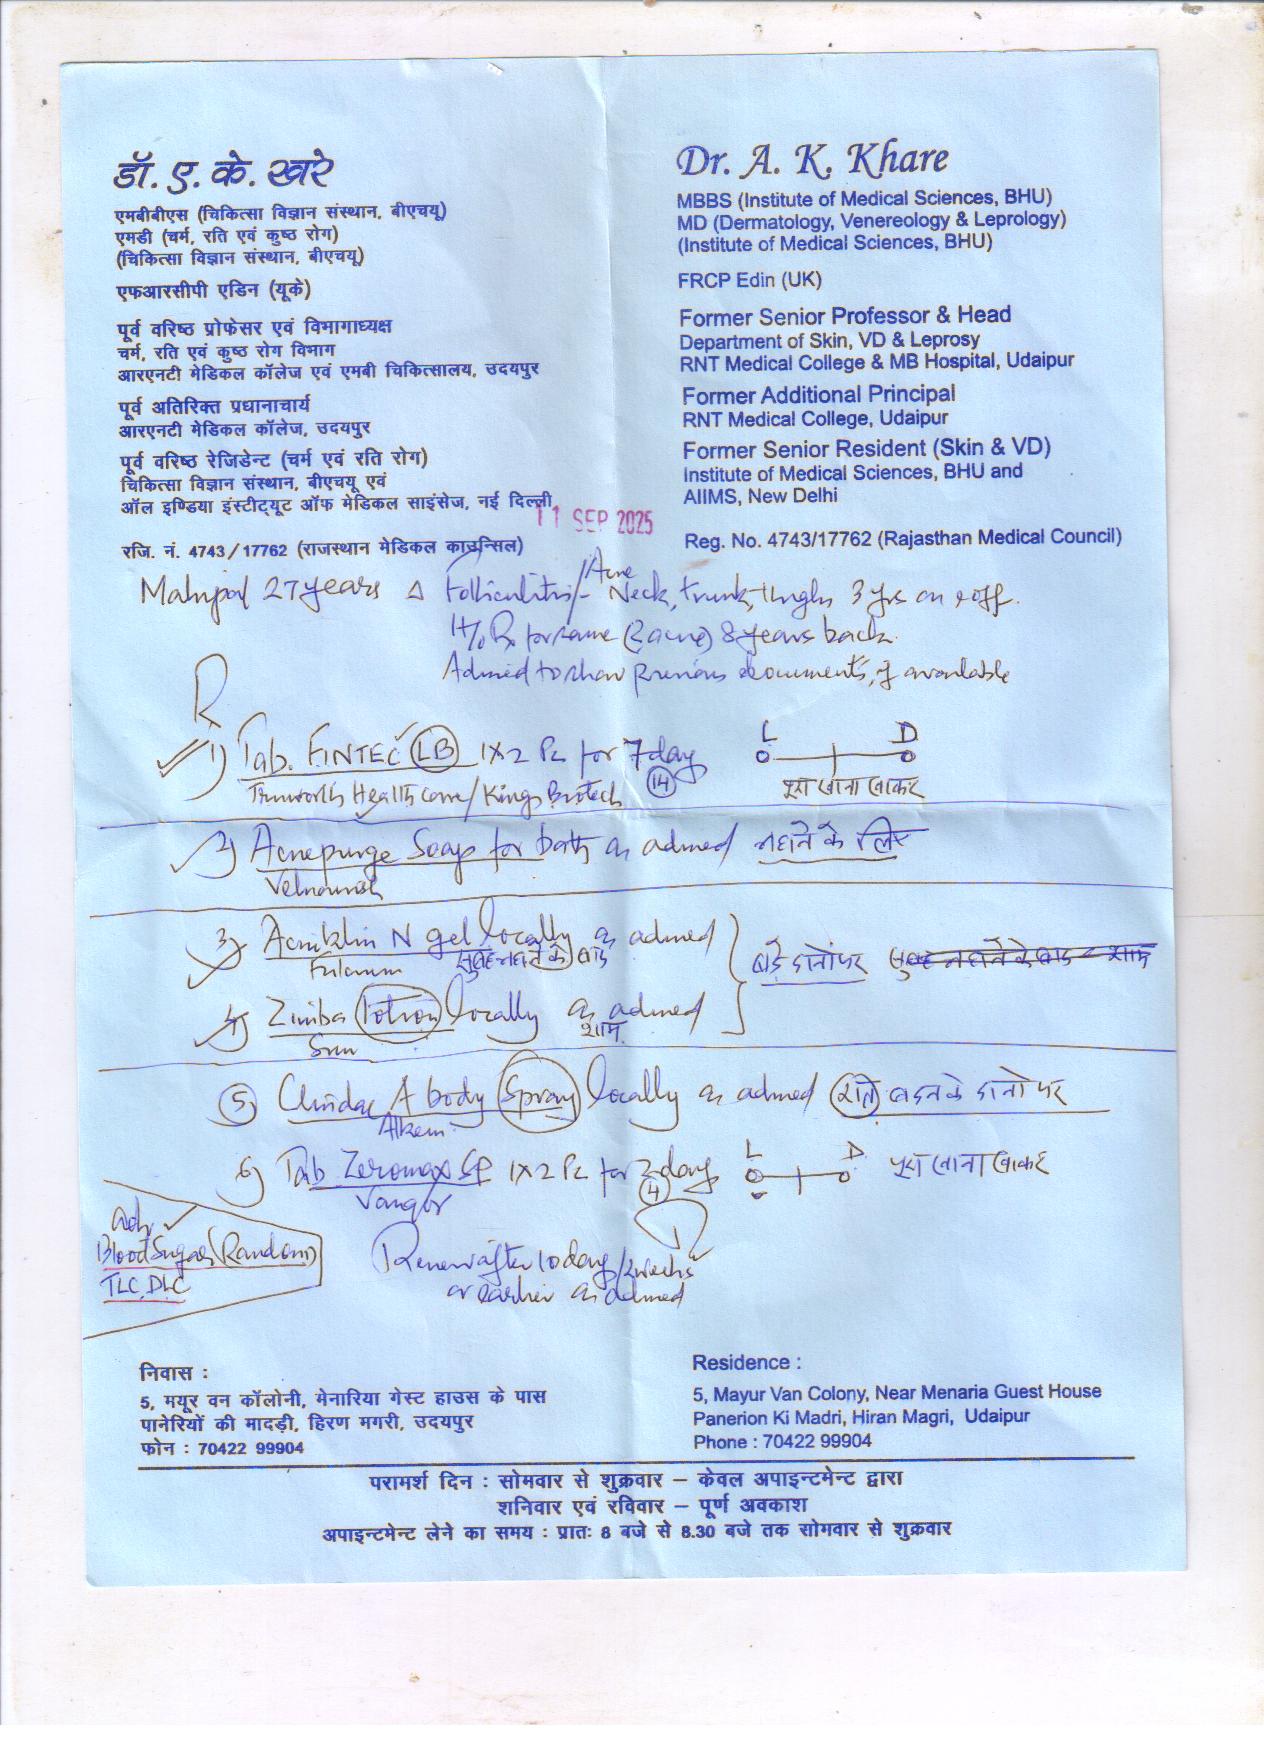 डॉ. ए. के. खरे
एमबीबीएस (चिकित्सा विज्ञान संस्थान, बीएचयू)
एमडी (चर्म, रति एवं कुष्ठ रोग)
(चिकित्सा विज्ञान संस्थान, बीएचयू)
एफआरसीपी एडिन (यूके)
पूर्व वरिष्ठ प्रोफेसर एवं विभागाध्यक्ष
चर्म, रति एवं कुष्ठ रोग विभाग
आरएनटी मेडिकल कॉलेज एवं एमबी चिकित्सालय, उदयपुर
पूर्व अतिरिक्त प्रधानाचार्य
आरएनटी मेडिकल कॉलेज, उदयपुर
पूर्व वरिष्ठ रेजिडेन्ट (चर्म एवं रति रोग)
चिकित्सा विज्ञान संस्थान, बीएचयू एवं
ऑल इण्डिया इंस्टीट्यूट ऑफ मेडिकल साइंसेज, नई दिल्ली
रजि. नं. 4743/17762 (राजस्थान मेडिकल काउन्सिल)
Dr. A. K. Khare
MBBS (Institute of Medical Sciences, BHU)
MD (Dermatology, Venereology & Leprology)
(Institute of Medical Sciences, BHU)
FRCP Edin (UK)
Former Senior Professor & Head
Department of Skin, VD & Leprosy
RNT Medical College & MB Hospital, Udaipur
Former Additional Principal
RNT Medical College, Udaipur
Former Senior Resident (Skin & VD)
Institute of Medical Sciences, BHU and
AIIMS, New Delhi
Reg. No. 4743/17762 (Rajasthan Medical Council)
11 SEP 2025
Mahipal 27 years Δ Folliculitis/Acne Neck, trunk, thighs 3 yrs on & off.
H/o Rx for same (? acne) 8 years back.
Advised to show previous documents, if available
Rx
1) Tab. FINTEC LB 1X2 Pc for 7 days (14) L D
Truworth Healthcare/Kings Biotech पूरा खाना खाकर
2) Acnepurge Soap for bath as advised नहाने के लिए
Velnourish
3) Acniklin N gel locally as advised
Fulcrum सुबह नहाने के बाद
बड़े दानों पर
4) Zimba lotion locally as advised
Sun शाम
5) Clindac A body Spray locally as advised रात बदन के दानों पर
Alkem
6) Tab Zeromax SP 1X2 Pc for 2 days (4) L D पूरा खाना खाकर
Adv
Blood Sugar (Random)
TLC, DLC
Renew after 10 days/2 weeks
or earlier as advised
निवास :
5, मयूर वन कॉलोनी, मेनारिया गेस्ट हाउस के पास
पानेरियों की मादड़ी, हिरण मगरी, उदयपुर
फोन : 70422 99904
Residence :
5, Mayur Van Colony, Near Menaria Guest House
Panerion Ki Madri, Hiran Magri, Udaipur
Phone : 70422 99904
परामर्श दिन : सोमवार से शुक्रवार – केवल अपाइन्टमेन्ट द्वारा
शनिवार एवं रविवार – पूर्ण अवकाश
अपाइन्टमेन्ट लेने का समय : प्रातः 8 बजे से 8.30 बजे तक सोमवार से शुक्रवार